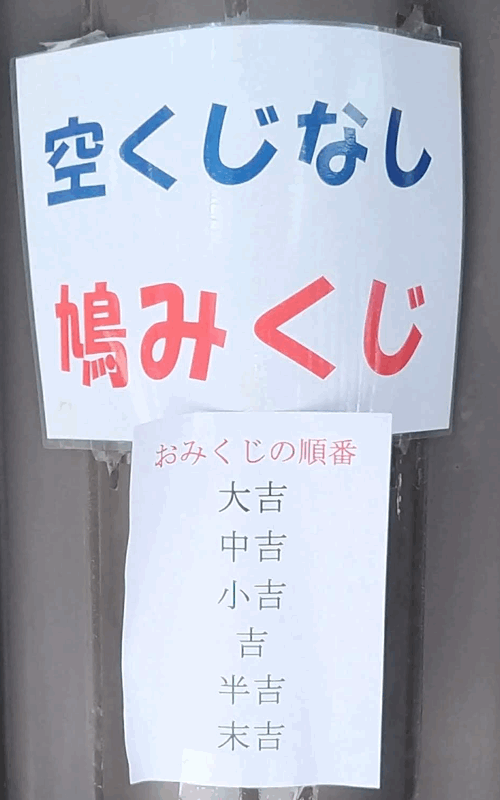 空くじなし
鳩みくじ
おみくじの順番
大吉
中吉
小吉
吉
半吉
末吉